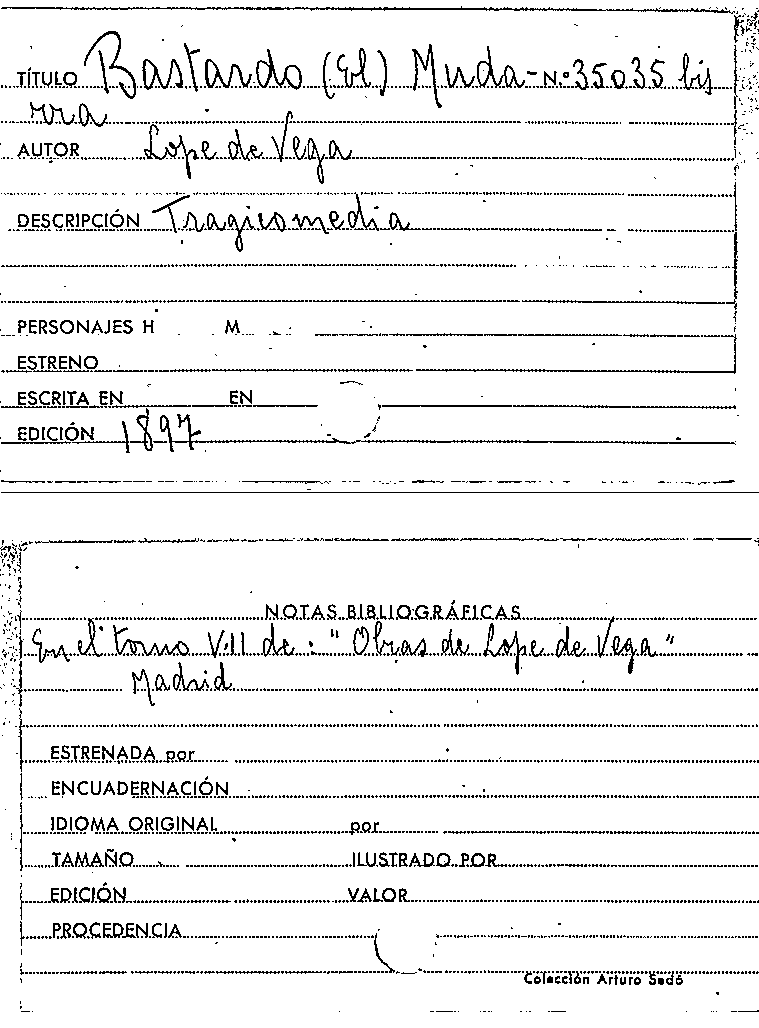 TÍTULO Bastardo (El) Muda- N.º 35035 bis
rra
AUTOR Lope de Vega
DESCRIPCIÓN Tragicomedia
PERSONAJES H M
ESTRENO
ESCRITA EN EN
EDICIÓN 1897
NOTAS BIBLIOGRÁFICAS
En el tomo VII de: "Obras de Lope de Vega"
Madrid
ESTRENADA por
ENCUADERNACIÓN
IDIOMA ORIGINAL por
TAMAÑO ILUSTRADO POR
EDICIÓN VALOR
PROCEDENCIA
Colección Arturo Sedó